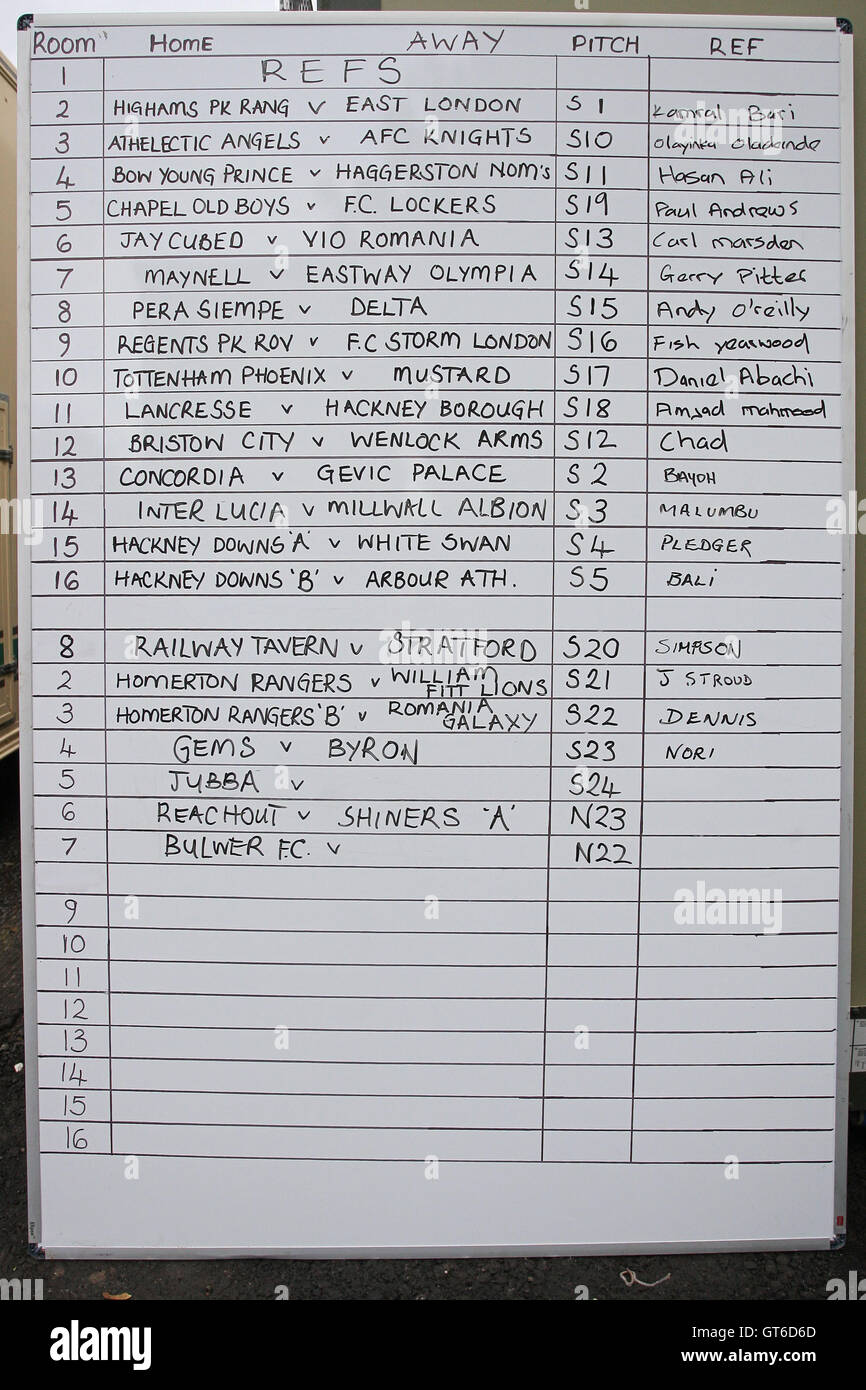 Room Home AWAY PITCH REF
1 REFS
2 HIGHAMS PK RANG v EAST LONDON S 1 Kamral Bari
3 ATHELECTIC ANGELS v AFC KNIGHTS S10 Olayinka Oladende
4 BOW YOUNG PRINCE v HAGGERSTON NOM'S S11 Hasan Ali
5 CHAPEL OLD BOYS v F.C. LOCKERS S19 Paul Andrews
6 JAY CUBED v VIO ROMANIA S13 Carl marsden
7 MAYNELL v EASTWAY OLYMPIA S14 Gerry Pitter
8 PERA SIEMPE v DELTA S15 Andy O'reilly
9 REGENTS PK ROV v F.C STORM LONDON S16 Fish yearwood
10 TOTTENHAM PHOENIX v MUSTARD S17 Daniel Abachi
11 LANCRESSE v HACKNEY BOROUGH S18 Amjad mahmood
12 BRISTOW CITY v WENLOCK ARMS S12 Chad
13 CONCORDIA v GEVIC PALACE S 2 BAYOH
14 INTER LUCIA v MILLWALL ALBION S3 MALUMBU
15 HACKNEY DOWNS 'A' v WHITE SWAN S4 PLEDGER
16 HACKNEY DOWNS 'B' v ARBOUR ATH. S5 BALI
8 RAILWAY TAVERN v STRATFORD S20 SIMPSON
2 HOMERTON RANGERS v WILLIAM FITT LIONS S21 J STROUD
3 HOMERTON RANGERS 'B' v ROMANIA GALAXY S22 DENNIS
4 GEMS v BYRON S23 NORI
5 JUBBA v S24
6 REACHOUT v SHINERS 'A' N23
7 BULWER F.C. v N22
9
10
11
12
13
14
15
16
alamy
Image ID: GT6D6D
www.alamy.com